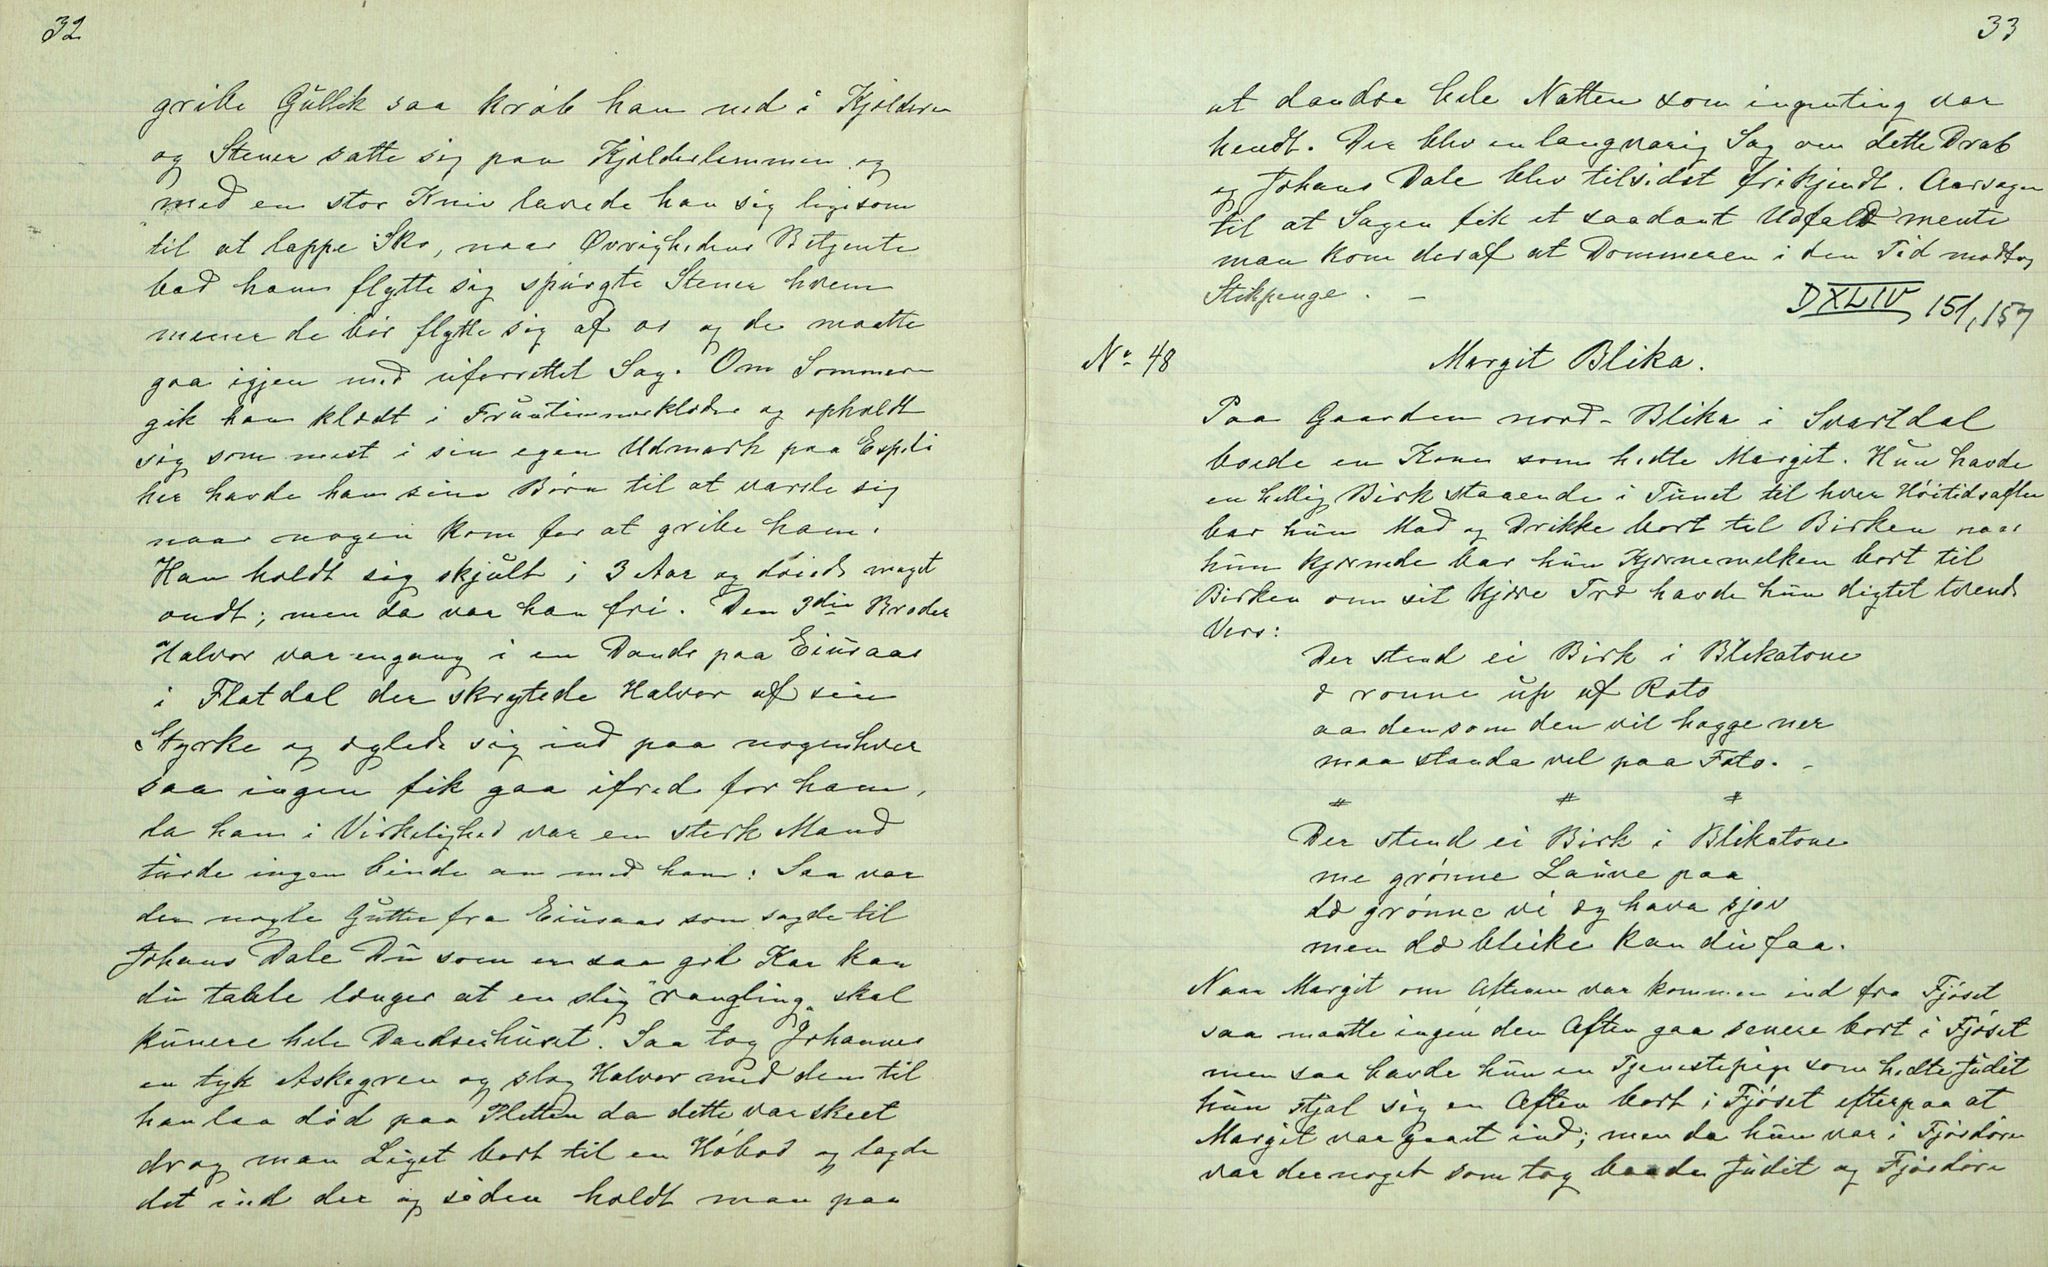 32
gribe Gullik saa krøb han ned i Kjelderen
og Stener satte sig paa Kjelderlemmen og
med en stor Kniv lavede han sig ligesom
til at lappe Sko, naar Øvrighedens Betjente
bad ham flytte sig spurgte Stener hvem
mener de bør flytte sig af os og de maatte
gaa igjen med uforrettet Sag. Om Sommeren
gik han klædt i Fruntimmerklæder og opholdt
sig som mest i sin egen Udmark paa Espeli
her havde han sine Børn til at varsle sig
naar nogen kom for at gribe ham.
Han holdt sig skjult i 3 Aar og døiede meget
ondt; men da var han fri. Den 3die Broder
Halvor var engang i en Dands paa Einsaas
i Flatdal der skrytede Halvor af sin
Styrke og æglede sig ind paa nogenhver
saa ingen fik gaa ifred for ham,
da han i Virkelighed var en sterk Mand
turde ingen binde an med ham: Saa var
der nogle Gutter fra Einsaas som sagde til
Johans Dale Du som er saa gild Kar kan
du taale længer at en slig "rangling" skal
kunere hele Dandsenhuset. Saa tog Johannes
en tyk Askegren og slog Halvor med den til
han laa død paa Pletten da dette var skeet
drog man Liget bort til en Høbod og lagde
det ind der og siden holdt man paa
33
at dandse hele Natten som ingenting var
hendt. Der blev en langvarig Sag om dette Drab
og Johans Dale blev tilsidst frikjendt. Aarsagen
til at Sagen fik et saadant Udfald mente
man kom deraf at Dommeren i den Tid modtog
Stikpenge. –
DXLIV 151, 157
No 48 Margit Blika.
Paa Gaarden nord-Blika i Svartdal
boede en Kone som hedte Margit. Hun havde
en hellig Birk staaende i Tunet til hver Høitidsaften
bar hun Mad og Drikke bort til Birken naar
hun kjernede bar hun Kjernemelken bort til
Birken om sit kjære Træ havde hun digtet tvende
Vers:
Der stend ei Birk i Blikatone
æ ronne up af Roto
aa den som den vil hogge ner
maa standa vel paa Foto. –
# # #
Der stend ei Birk i Blikatone
me grønne Lauve paa
dæ grønne vi æg hava sjøv
men dæ bleike kan du faa.
Naar Margit om Aftenen var kommen ind fra Fjøset
saa maatte ingen den Aften gaa senere bort i Fjøset
men saa havde hun en Tjenestepige som hedte Judit
hun stjal sig en Aften bort i Fjøset efterpaa at
Margit var gaaet ind; men da hun var i Fjøsdøren
var der noget som tog baade Judit og Fjøsdøren